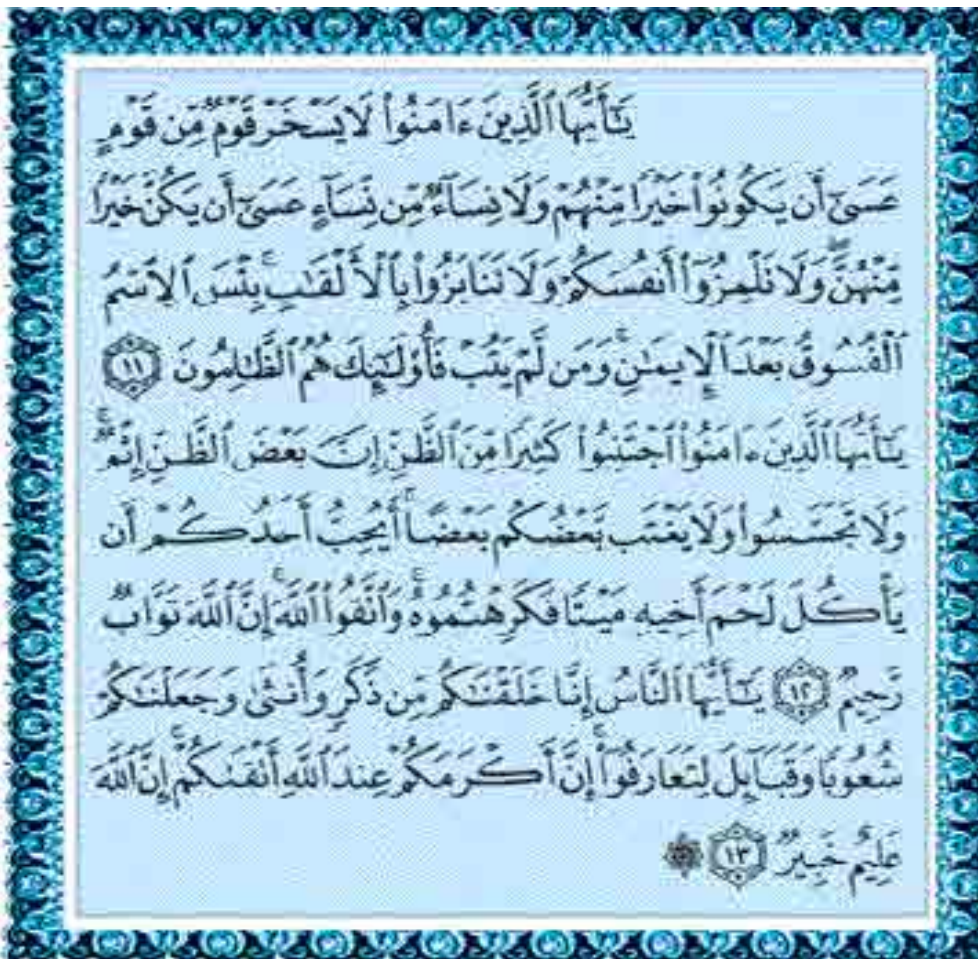 يَـٰٓأَيُّهَا ٱلَّذِينَ ءَامَنُوا۟ لَا يَسْخَرْ قَوْمٌ مِّن قَوْمٍ
عَسَىٰٓ أَن يَكُونُوا۟ خَيْرًا مِّنْهُمْ وَلَا نِسَآءٌ مِّن نِّسَآءٍ عَسَىٰٓ أَن يَكُنَّ خَيْرًا
مِّنْهُنَّ ۖ وَلَا تَلْمِزُوٓا۟ أَنفُسَكُمْ وَلَا تَنَابَزُوا۟ بِٱلْأَلْقَـٰبِ ۖ بِئْسَ ٱلِٱسْمُ
ٱلْفُسُوقُ بَعْدَ ٱلْإِيمَـٰنِ ۚ وَمَن لَّمْ يَتُبْ فَأُو۟لَـٰٓئِكَ هُمُ ٱلظَّـٰلِمُونَ ﴿١١﴾
يَـٰٓأَيُّهَا ٱلَّذِينَ ءَامَنُوا۟ ٱجْتَنِبُوا۟ كَثِيرًا مِّنَ ٱلظَّنِّ إِنَّ بَعْضَ ٱلظَّنِّ إِثْمٌ ۖ
وَلَا تَجَسَّسُوا۟ وَلَا يَغْتَب بَّعْضُكُم بَعْضًا ۚ أَيُحِبُّ أَحَدُكُمْ أَن
يَأْكُلَ لَحْمَ أَخِيهِ مَيْتًا فَكَرِهْتُمُوهُ ۚ وَٱتَّقُوا۟ ٱللَّهَ ۚ إِنَّ ٱللَّهَ تَوَّابٌ
رَّحِيمٌ ﴿١٢﴾ يَـٰٓأَيُّهَا ٱلنَّاسُ إِنَّا خَلَقْنَـٰكُم مِّن ذَكَرٍ وَأُنثَىٰ وَجَعَلْنَـٰكُمْ
شُعُوبًا وَقَبَآئِلَ لِتَعَارَفُوٓا۟ ۚ إِنَّ أَكْرَمَكُمْ عِندَ ٱللَّهِ أَتْقَىٰكُمْ ۚ إِنَّ ٱللَّهَ
عَلِيمٌ خَبِيرٌ ﴿١٣﴾